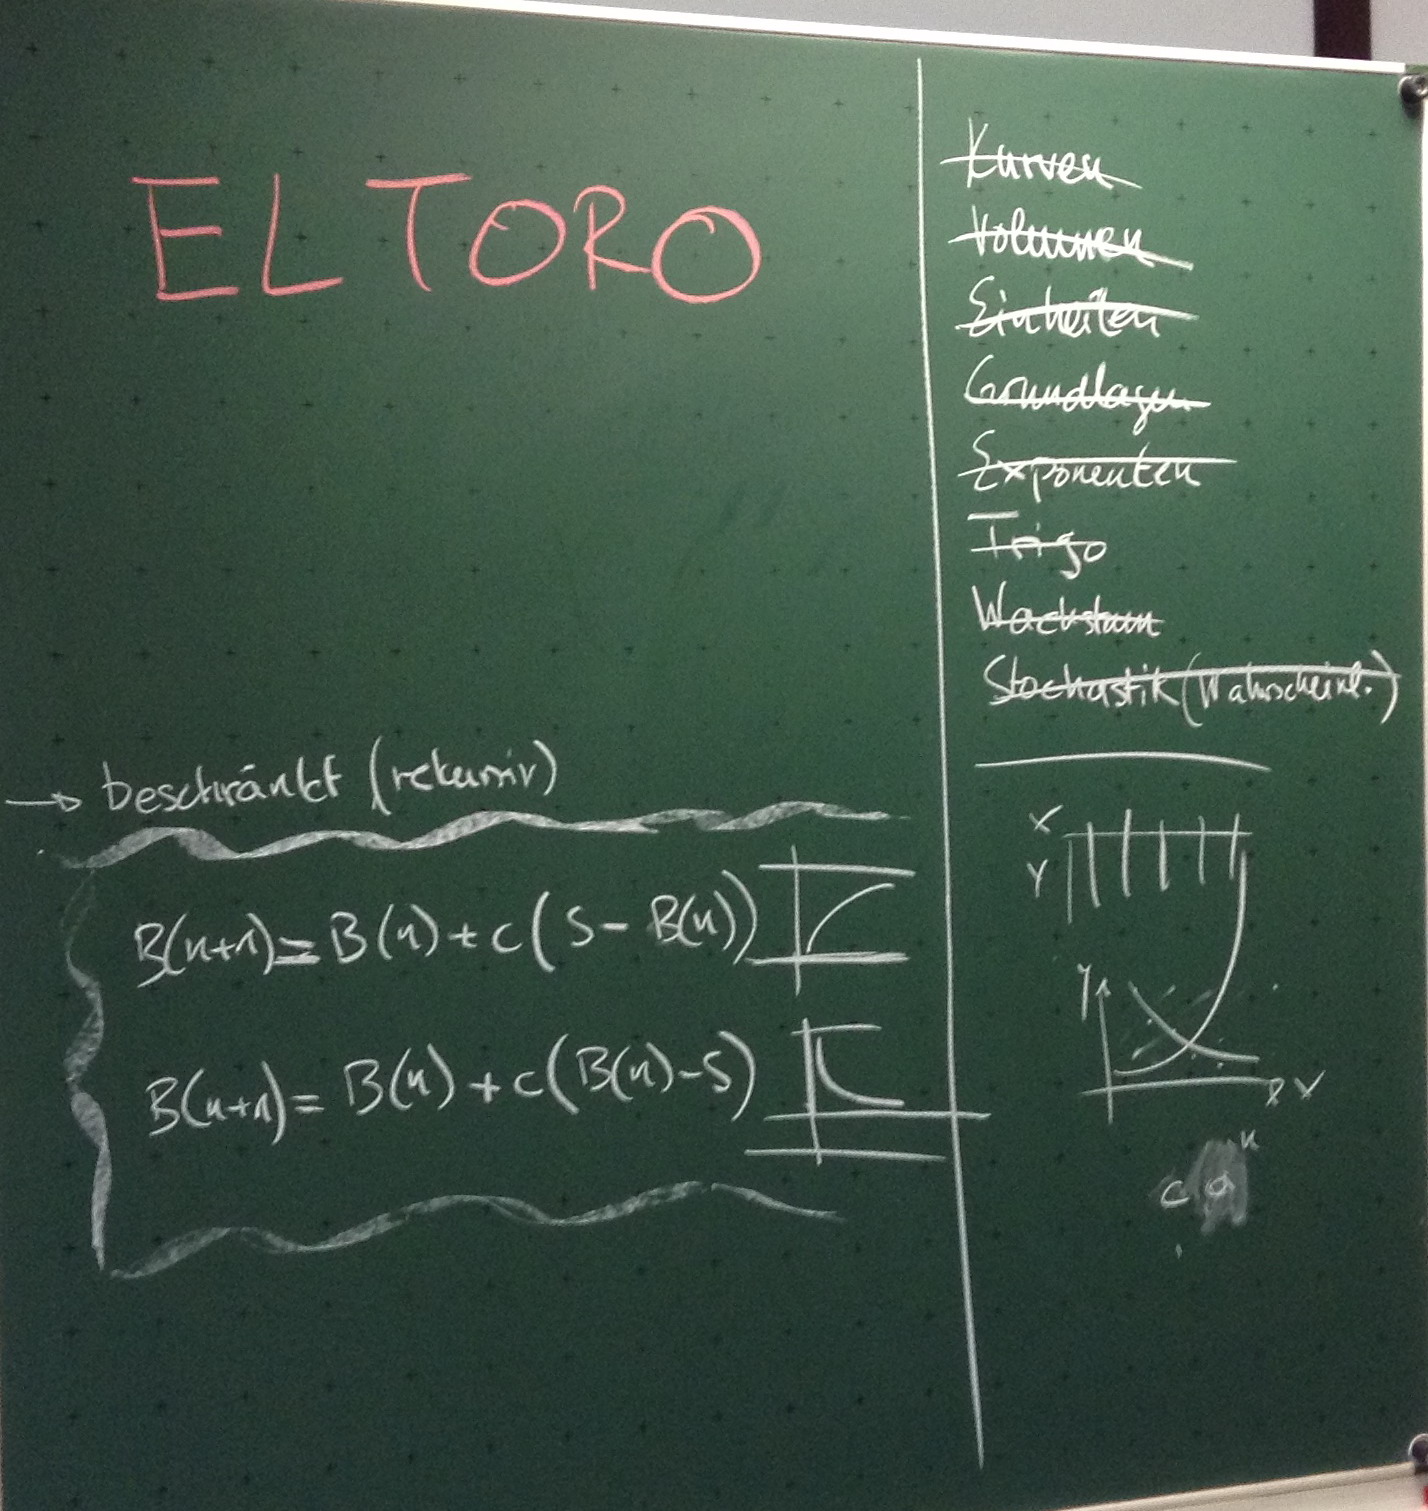 EL TORO
→ beschränkt (rekursiv)
B(n+1) = B(n) + c(S - B(n))
B(n+1) = B(n) + c(B(n) - S)
Kurven
Volumen
Einheiten
Grundlagen
Exponenten
Trigo
Wachstum
Stochastik (Wahrscheinl.)
X
Y
Y
X
c a^n